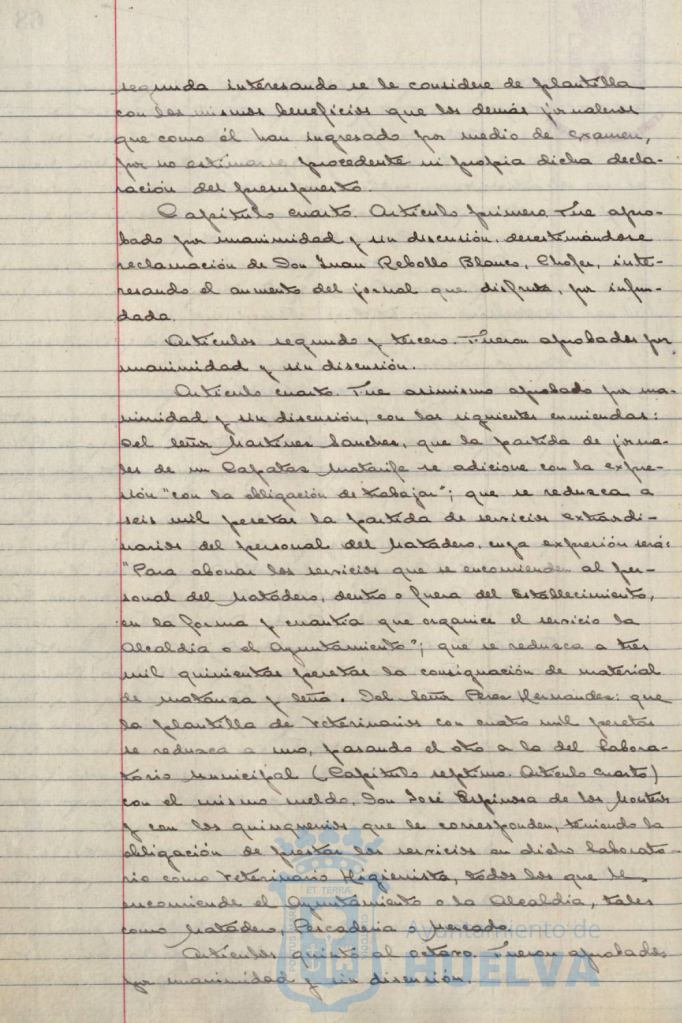 segunda interesando se le considere de plantilla
con los mismos beneficios que los demás jornaleros
que como él han ingresado por medio de examen,
por no estimarse procedente ni propia dicha decla-
ración del presupuesto.
Capítulo cuarto. Artículo primero. Fue apro-
bado por unanimidad y sin discusión, desestimándose
reclamación de Don Juan Rebollo Blanco, Chofer, inte-
resando el aumento del jornal que disfruta, por infun-
dada.
Artículos segundo y tercero. Fueron aprobados por
unanimidad y sin discusión.
Artículo cuarto. Fue asimismo aprobado por una-
nimidad y sin discusión, con las siguientes enmiendas:
Del Señor Martinez Sanchez, que la partida de jorna-
les de un Capataz Matarife se adicione con la expre-
sión "con la obligación de trabajar"; que se reduzca a
seis mil pesetas la partida de servicios extraordi-
narios del personal del Matadero, cuya expresión será:
"Para abonar los servicios que se encomienden al per-
sonal del Matadero, dentro o fuera del Establecimiento,
en la forma y cuantía que organice el servicio la
Alcaldía o el Ayuntamiento"; que se reduzca a tres
mil quinientas pesetas la consignación de material
de matanza y leña. Del Señor Perez Hernandez: que
la plantilla de Veterinarios con cuatro mil pesetas
se reduzca a uno, pasando el otro a la del Labora-
torio Municipal (Capítulo séptimo. Artículo cuarto)
con el mismo sueldo, Don José Espinosa de los Monteros
y con los quinquenios que le corresponden, teniendo la
obligación de prestar los servicios en dicho Laborato-
rio como Veterinario Higienista, todos los que le
encomiende el Ayuntamiento o la Alcaldía, tales
como Matadero, Pescadería o Mercado.
Artículos quinto al octavo. Fueron aprobados
por unanimidad y sin discusión.
ET TERRA
Ayuntamiento de
HUELVA